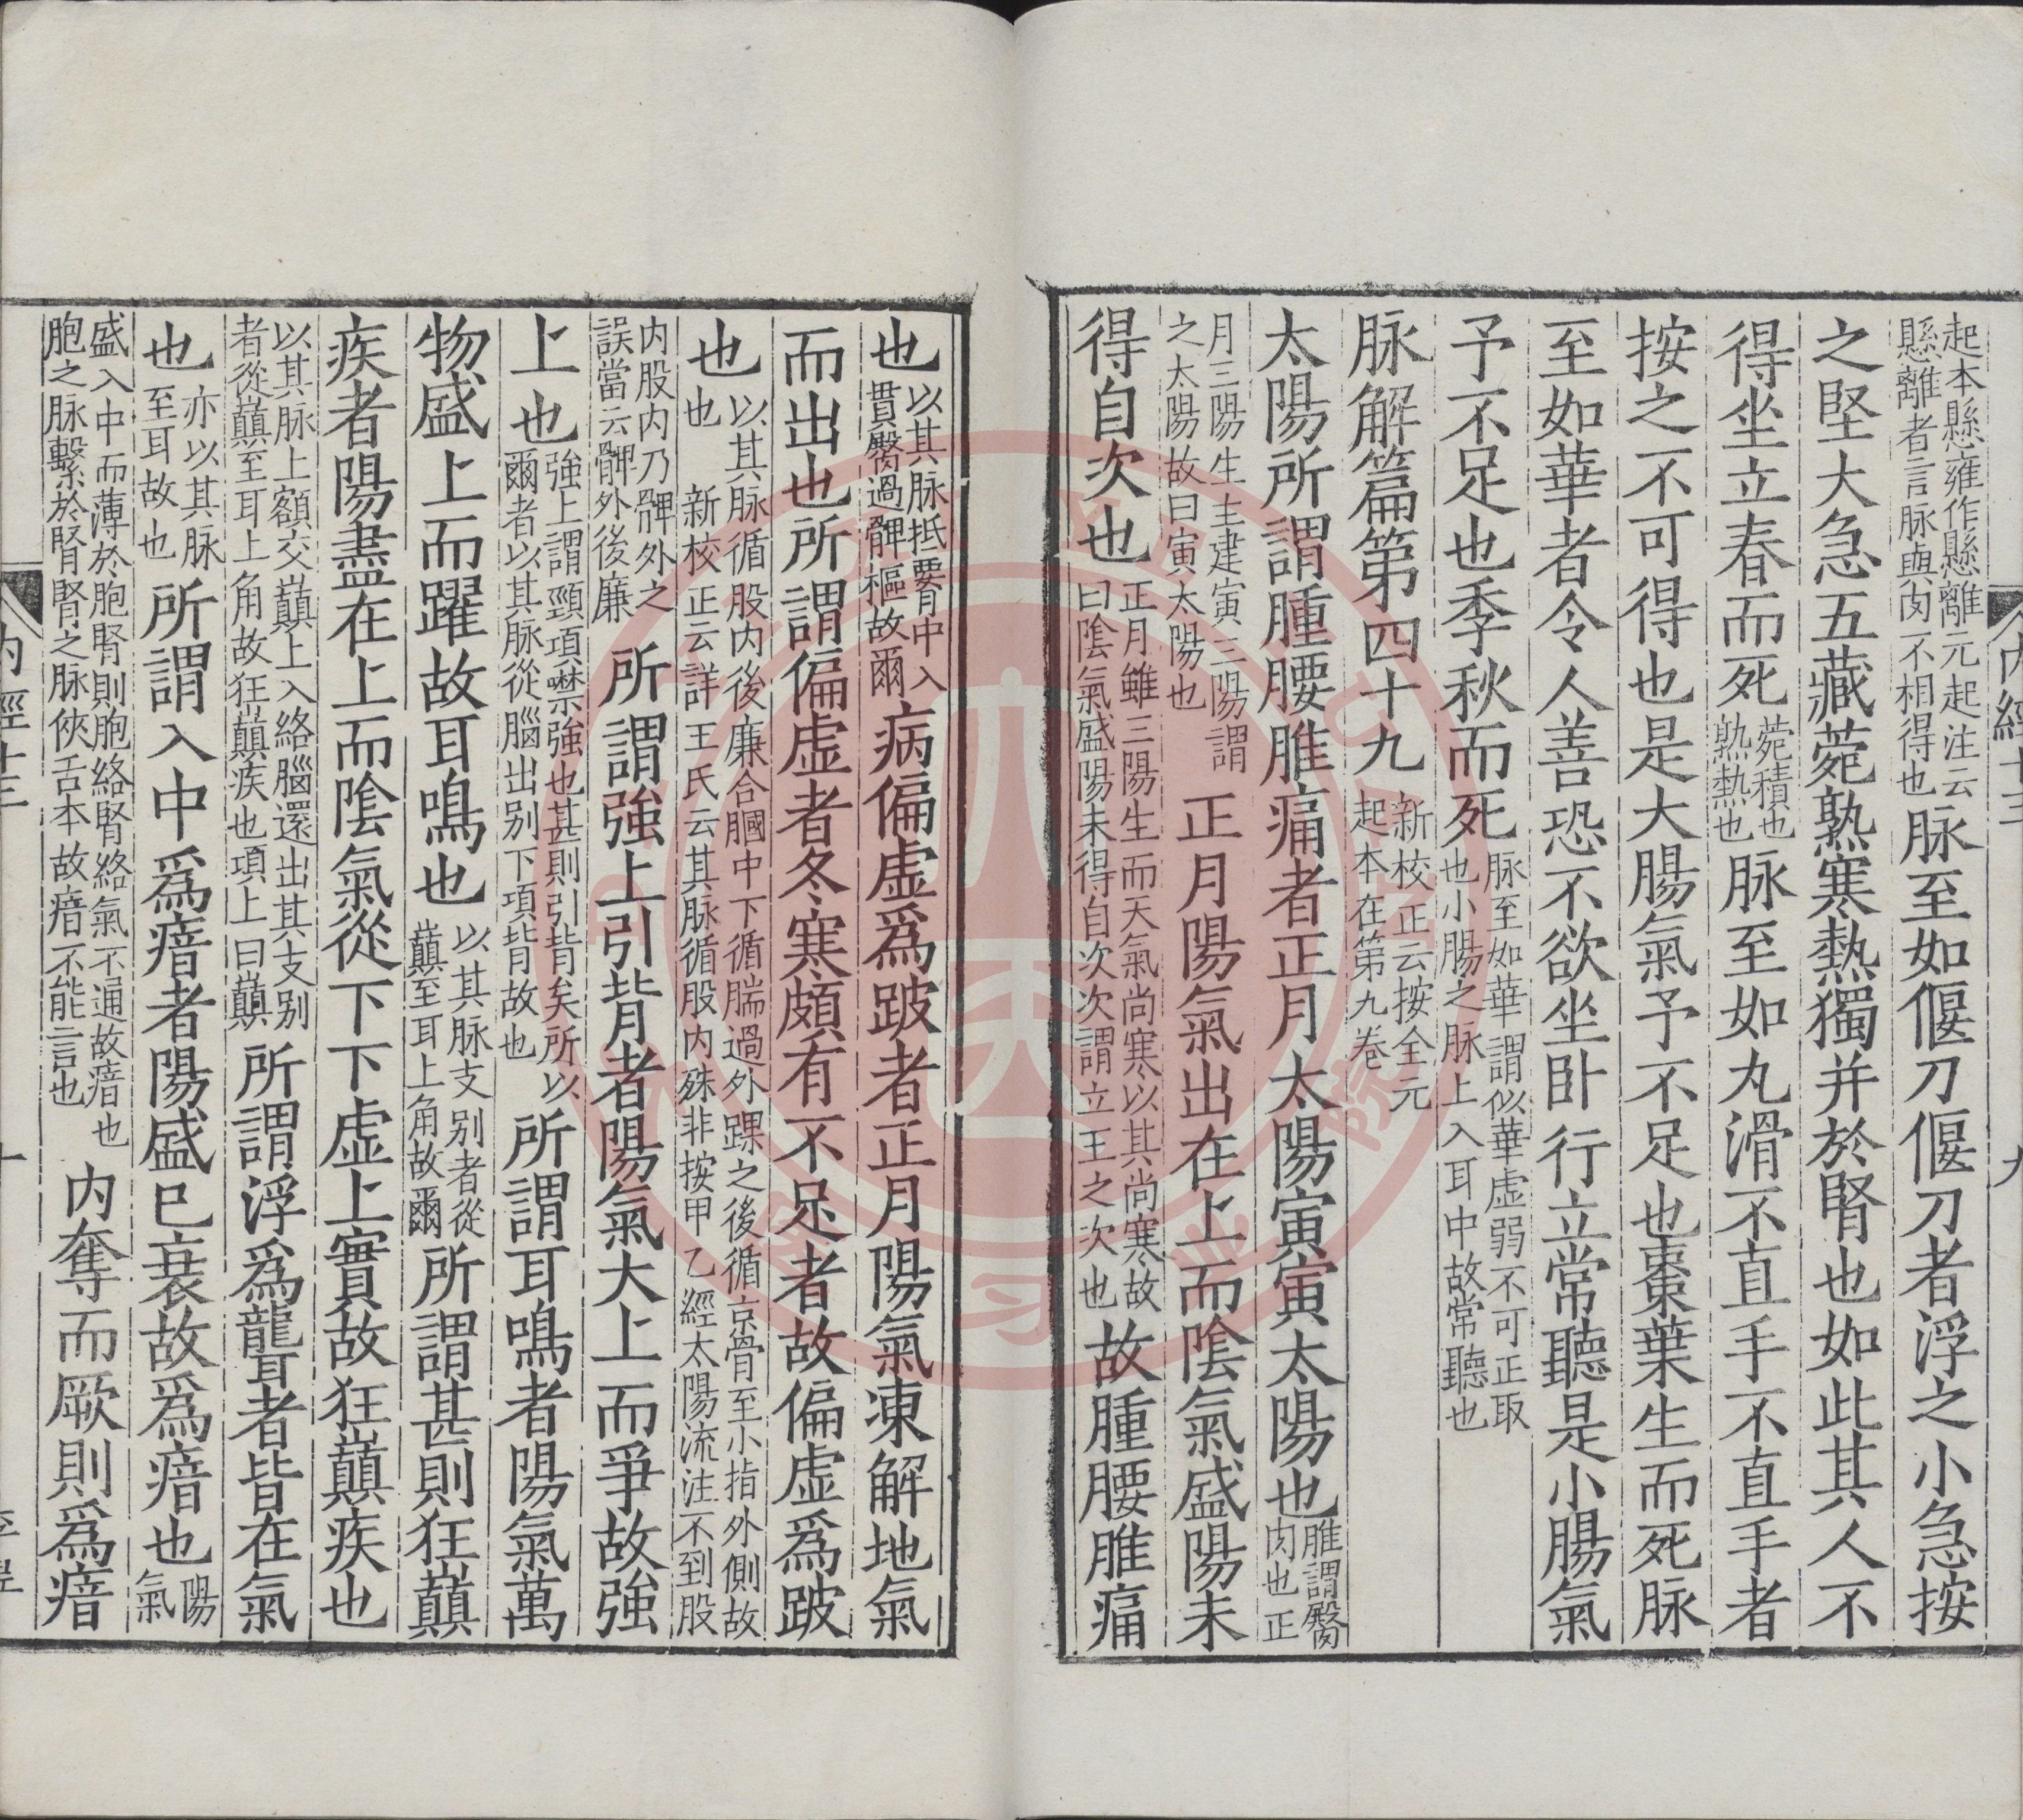 起本懸雍作懸離元起注云
懸離者言脉與肉不相得也
脉至如偃刀偃刀者浮之小急按
之堅大急五藏菀熟寒熱獨并於腎也如此其人不
得坐立春而死
菀積也
熟熱也
脉至如丸滑不直手不直手者
按之不可得也是大腸氣予不足也棗葉生而死脉
至如華者令人善恐不欲坐卧行立常聽是小腸氣
予不足也季秋而死
脉至如華謂似華虛弱不可正取
也小腸之脉上入耳中故常聽也
脉解篇第四十九
新校正云按全元
起本在第九卷
太陽所謂腫腰脽痛者正月太陽寅寅太陽也
脽謂臀
肉也正
月三陽生主建寅三陽謂
之太陽故曰寅太陽也
正月陽氣出在上而陰氣盛陽未
得自次也
正月雖三陽生而天氣尚寒以其尚寒故
曰陰氣盛陽未得自次次謂立王之次也
故腫腰脽痛
也
以其脉抵要中入
貫臀過髀樞故爾
病偏虛爲跛者正月陽氣凍解地氣
而出也所謂偏虛者冬寒頗有不足者故偏虛爲跛
也
以其脉循股内後廉合膕中下循腨過外踝之後循京骨至小指外側故
也 新校正云詳王氏云其脉循股内殊非按甲乙經太陽流注不到股
内股内乃髀外之
誤當云髀外後廉
所謂強上引背者陽氣大上而爭故強
上也
強上謂頸項噤強也甚則引背矣所以
爾者以其脉從腦出别下項背故也
所謂耳鳴者陽氣萬
物盛上而躍故耳鳴也
以其脉支别者從
巔至耳上角故爾
所謂甚則狂巔
疾者陽盡在上而陰氣從下下虛上實故狂巔疾也
以其脉上額交巔上入絡腦還出其支别
者從巔至耳上角故狂巔疾也項上曰巔
所謂浮爲聾者皆在氣
也
亦以其脉
至耳故也
所謂入中爲瘖者陽盛已衰故爲瘖也
陽
氣
盛入中而薄於胞腎則胞絡腎絡氣不通故瘖也
胞之脉繫於腎腎之脉俠舌本故瘖不能言也
内奪而厥則爲瘖
内經十三
九
内經十三
十